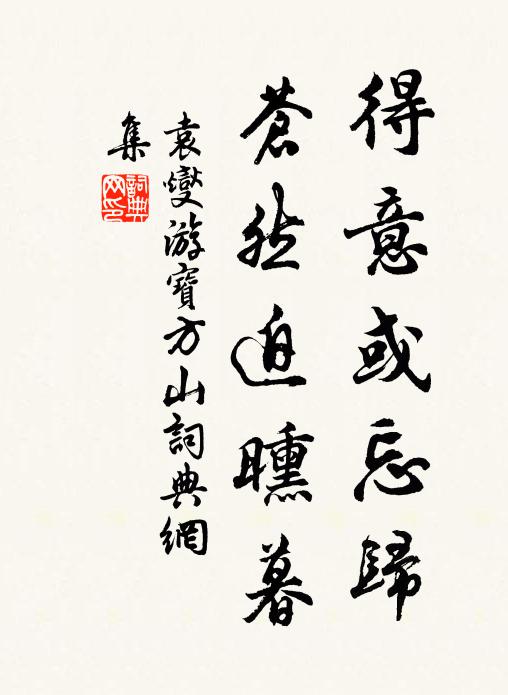 得意或忘歸
蒼然迫曛暮
袁燮游寶方山詞典網
集
詞典
网印